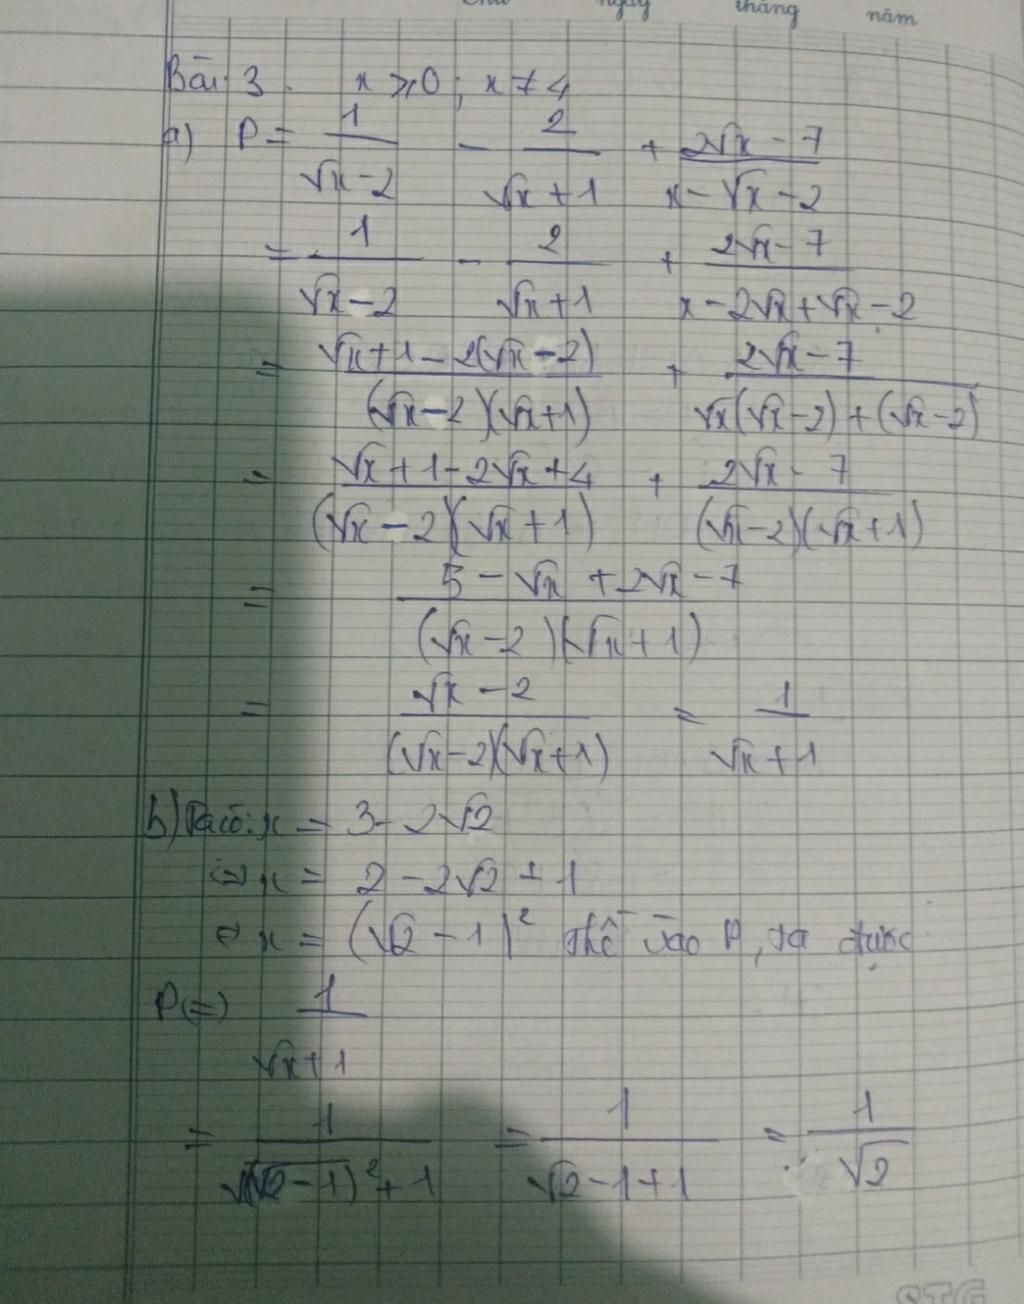 ngày tháng năm
Bài 3. x ⩾ 0 ; x ≠ 4
a) P = 1/(√x - 2) - 2/(√x + 1) + (2√x - 7)/(x - √x - 2)
= 1/(√x - 2) - 2/(√x + 1) + (2√x - 7)/(x - 2√x + √x - 2)
= (√x + 1 - 2(√x - 2))/((√x - 2)(√x + 1)) + (2√x - 7)/(√x(√x - 2) + (√x - 2))
= (√x + 1 - 2√x + 4)/((√x - 2)(√x + 1)) + (2√x - 7)/((√x - 2)(√x + 1))
= (5 - √x + 2√x - 7)/((√x - 2)(√x + 1))
= (√x - 2)/((√x - 2)(√x + 1)) = 1/(√x + 1)
b) Ta có: x = 3 - 2√2
⇔ x = 2 - 2√2 + 1
⇔ x = (√2 - 1)² thế vào P, ta được
P(=) 1/(√x + 1)
= 1/(√(√2 - 1)² + 1) = 1/(√2 - 1 + 1) = 1/√2